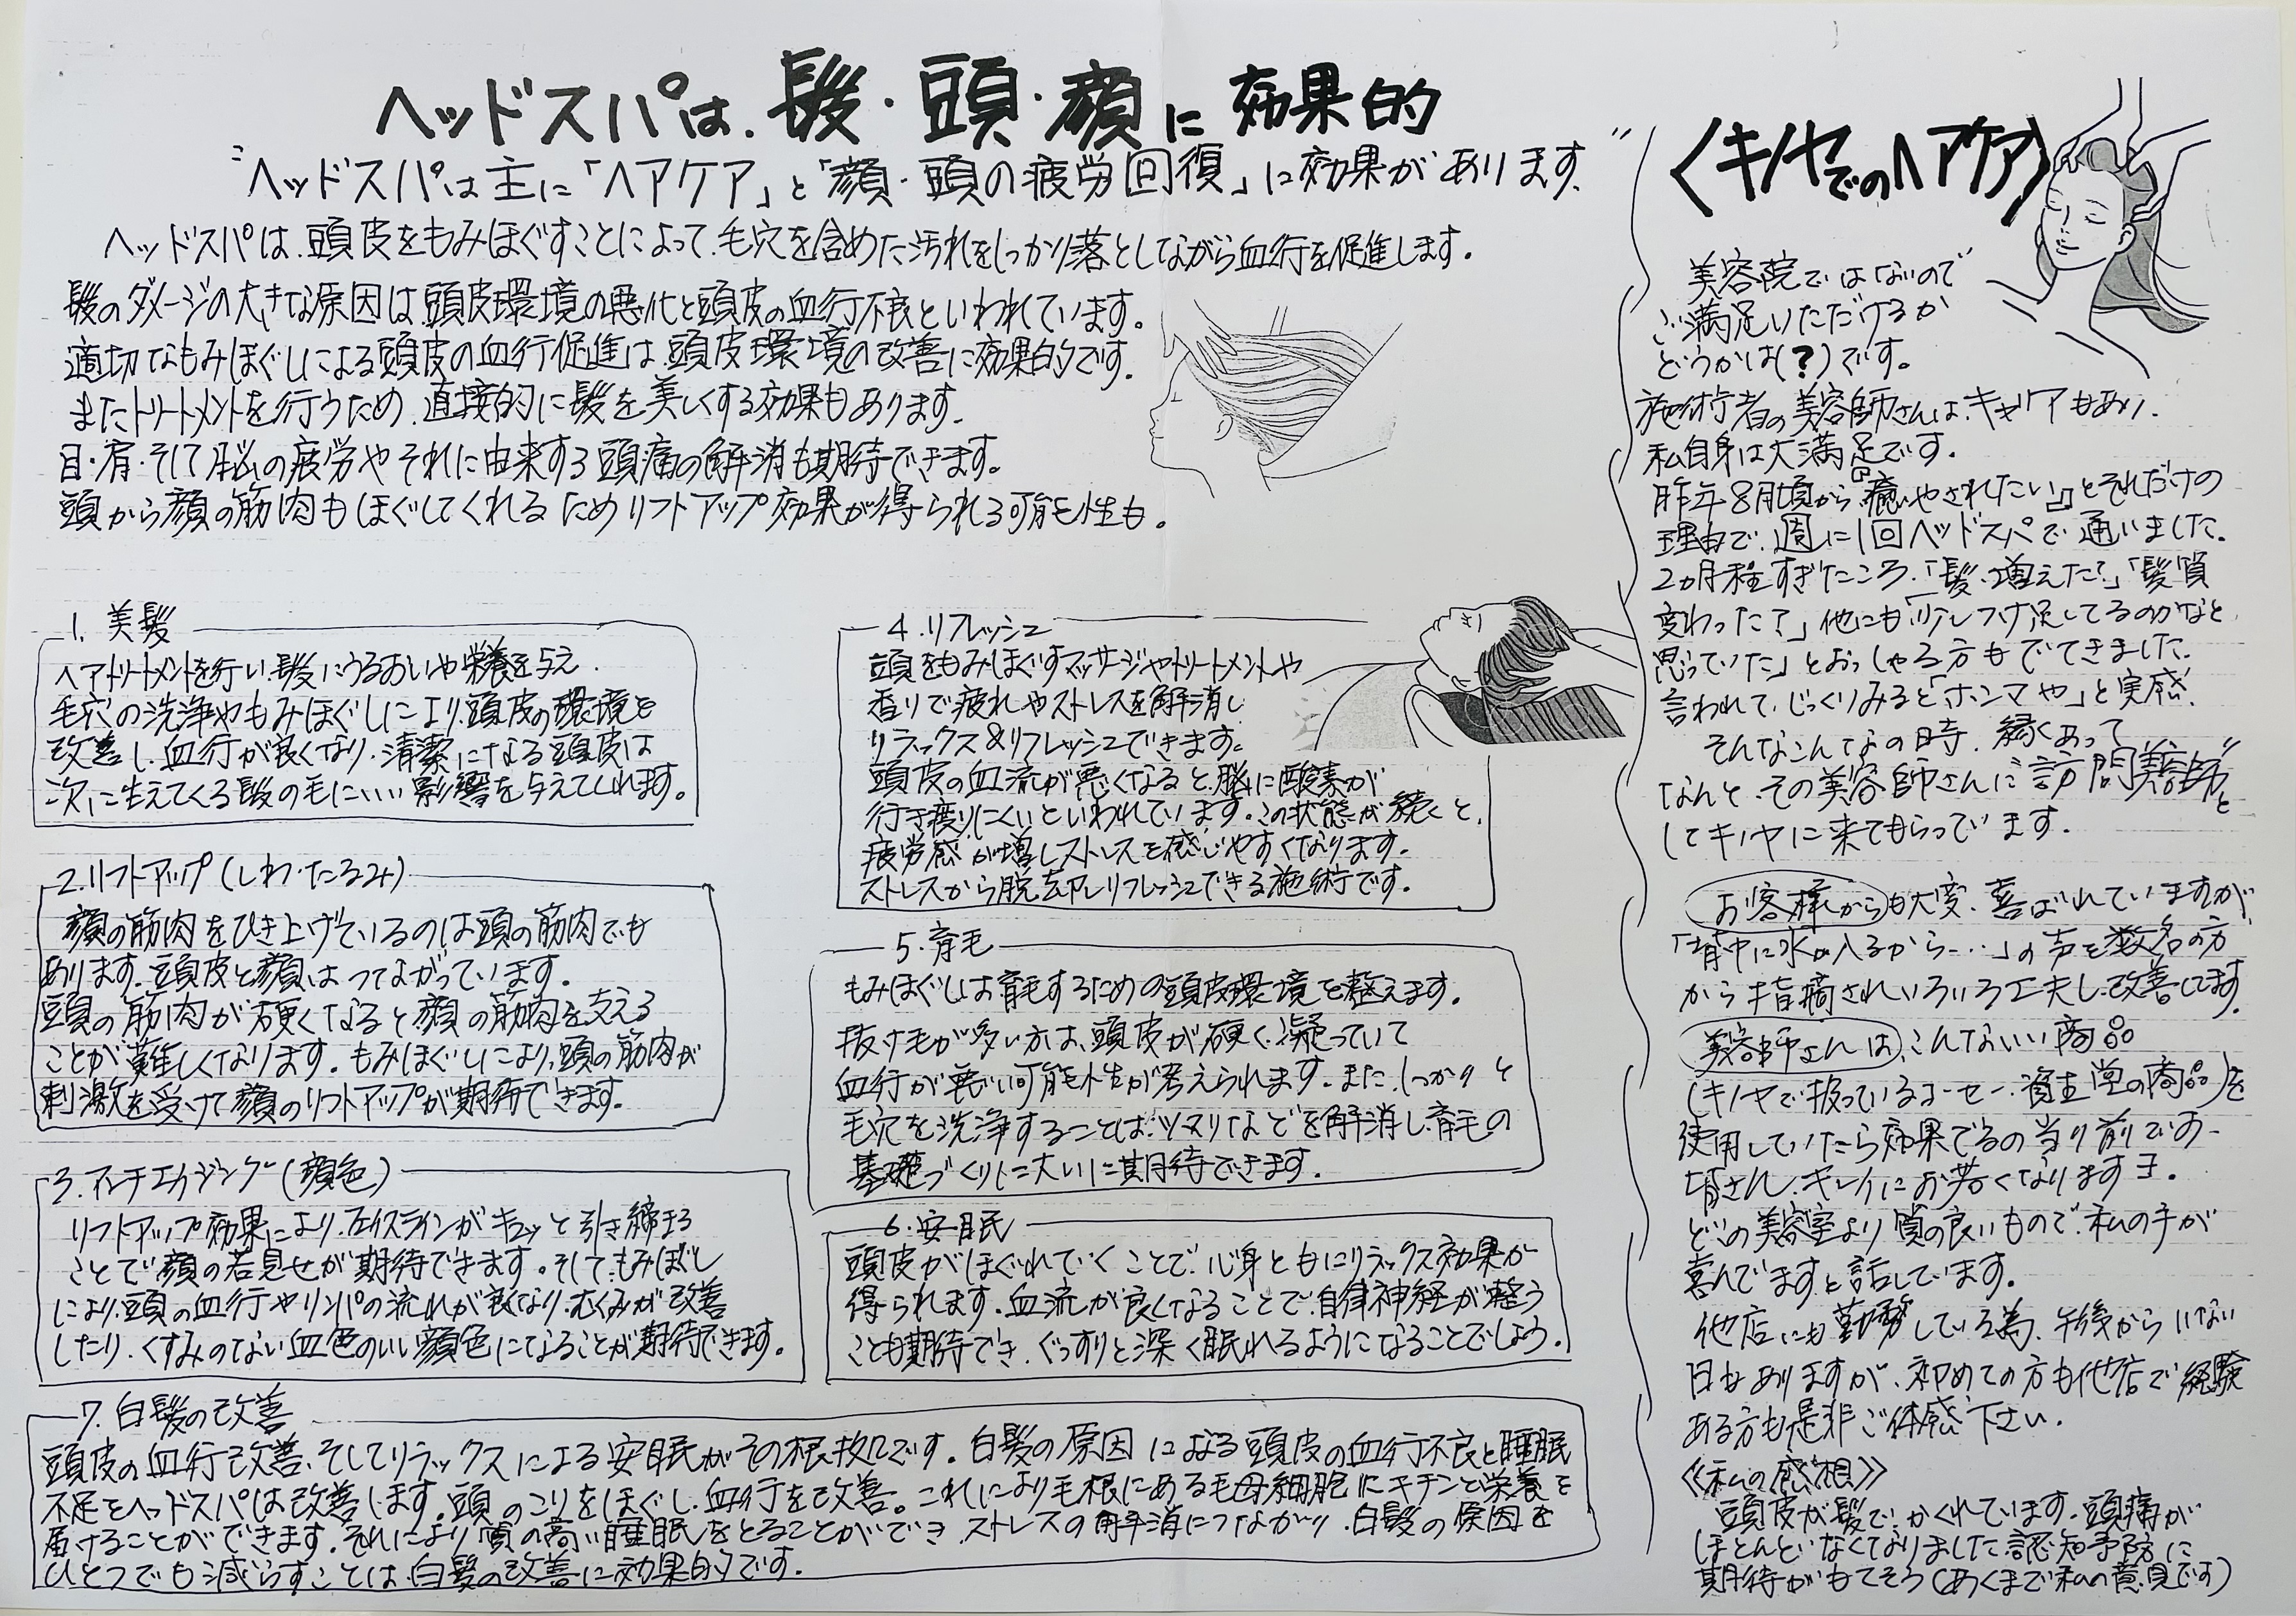 ヘッドスパは、髪・頭・顔に効果的
"ヘッドスパは主に「ヘアケア」と「顔・頭の疲労回復」に効果があります。"
ヘッドスパは、頭皮をもみほぐすことによって、毛穴を含めた汚れをしっかり落としながら血行を促進します。
髪のダメージの大きな原因は、頭皮環境の悪化と頭皮の血行不良といわれています。
適切なもみほぐしによる頭皮の血行促進は、頭皮環境の改善に効果的です。
またトリートメントを行うため、直接的に髪を美しくする効果もあります。
目・肩・そして脳の疲労やそれに由来する頭痛の解消も期待できます。
頭から顔の筋肉もほぐしてくれるためリフトアップ効果が得られる可能性も。
1. 美髪
ヘアトリートメントを行い、髪にうるおいや栄養を与え、
毛穴の洗浄やもみほぐしにより、頭皮の環境を
改善し、血行が良くなり、清潔になる頭皮は
次に生えてくる髪の毛にいい影響を与えてくれます。
2. リフトアップ(しわ・たるみ)
顔の筋肉をひき上げているのは頭の筋肉でも
あります。頭皮と顔はつながっています。
頭の筋肉が硬くなると顔の筋肉を支える
ことが難しくなります。もみほぐしにより、頭の筋肉が
刺激を受けて顔のリフトアップが期待できます。
3. アンチエイジング(顔色)
リフトアップ効果により、フェイスラインがキュッと引き締まる
ことで顔の若見せが期待できます。そして、もみほぐし
により、頭の血行やリンパの流れが良くなり、むくみが改善
したり、くすみのない血色のいい顔色になることが期待できます。
4. リフレッシュ
頭をもみほぐすマッサージやトリートメントや
香りで疲れやストレスを解消し
リラックス&リフレッシュできます。
頭皮の血流が悪くなると、脳に酸素が
行き渡りにくいといわれています。この状態が続くと、
疲労感が増しストレスを感じやすくなります。
ストレスから脱却しリフレッシュできる施術です。
5. 育毛
もみほぐしは育毛するための頭皮環境を整えます。
抜け毛が多い方は、頭皮が硬く凝っていて
血行が悪い可能性が考えられます。また、しっかりと
毛穴を洗浄することは、ツマリなどを解消し、育毛の
基礎づくりに大いに期待できます。
6. 安眠
頭皮がほぐれていくことで、心身ともにリラックス効果が
得られます。血流が良くなることで、自律神経が整う
ことも期待でき、ぐっすりと深く眠れるようになることでしょう。
7. 白髪の改善
頭皮の血行改善、そしてリラックスによる安眠がその根拠です。白髪の原因になる頭皮の血行不良と睡眠
不足をヘッドスパは改善します。頭のこりをほぐし、血行を改善。これにより毛根にある毛母細胞にキチンと栄養を
届けることができます。それにより質の高い睡眠をとることができ、ストレスの解消につながり、白髪の原因を
ひとつでも減らすことは、白髪の改善に効果的です。
〈キノヤでのヘアケア〉
美容院ではないので
ご満足いただけるか
どうかは(?)です。
施術者の美容師さんは、キャリアもあり、
私自身は大満足です。
昨年8月頃から『癒やされたい』とそれだけの
理由で、週に1回ヘッドスパで通いました。
2カ月程すぎたころ、「髪、増えた?」「髪質
変わった?」他にも「少しつけ足してるのかなと
思っていた」とおっしゃる方もでてきました。
言われて、じっくりみると「ホンマや」と実感。
そんなこんなの時、縁あって
なんと、その美容師さんに"訪問美容師"と
してキノヤに来てもらっています。
お客様からも大変、喜ばれていますが
「背中に水が入るから…」の声を数名の方
から指摘されいろいろ工夫し改善してます。
美容師さんは、こんないい商品
(キノヤで扱っているコーセー、資生堂の商品)を
使用していたら効果でるの当り前でぉー
皆さん、キレイにお若くなりますヨ。
どこの美容室より質の良いもので、私の手が
喜んでますと話しています。
他店にも勤務している為、午後からいない
日もありますが、初めての方も他店で経験
ある方も是非ご体感下さい。
《私の感想》
頭皮が髪でかくれています。頭痛が
ほとんどなくなりました。認知予防に
期待がもてそう(あくまで私の意見です)